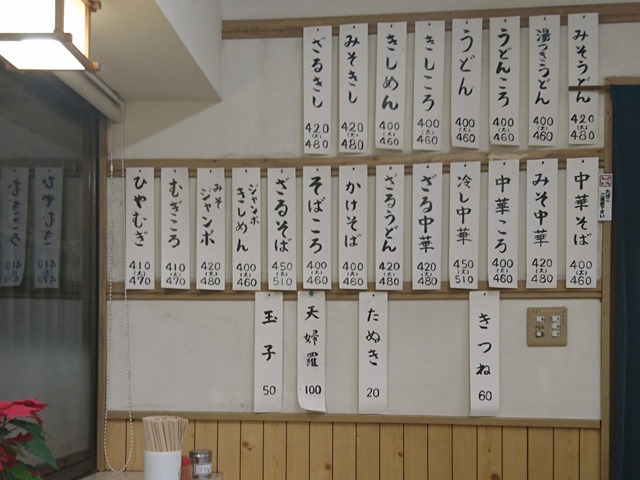 みそうどん 420 (大) 480
湯つきうどん 400 (大) 460
うどんころ 400 (大) 460
うどん 400 (大) 460
きしころ 400 (大) 460
きしめん 400 (大) 460
みそきし 420 (大) 480
ざるきし 420 (大) 480
中華そば 400 (大) 460
みそ中華 420 (大) 480
中華ころ 400 (大) 460
冷し中華 450 (大) 510
ざる中華 420 (大) 480
ざるうどん 420 (大) 480
かけそば 400 (大) 460
そばころ 400 (大) 460
ざるそば 450 (大) 510
ジャンボきしめん 400 460
みそジャンボ 420 480
むぎころ 410 (大) 470
ひやむぎ 410 (大) 470
きつね 60
たぬき 20
天婦羅 100
玉子 50